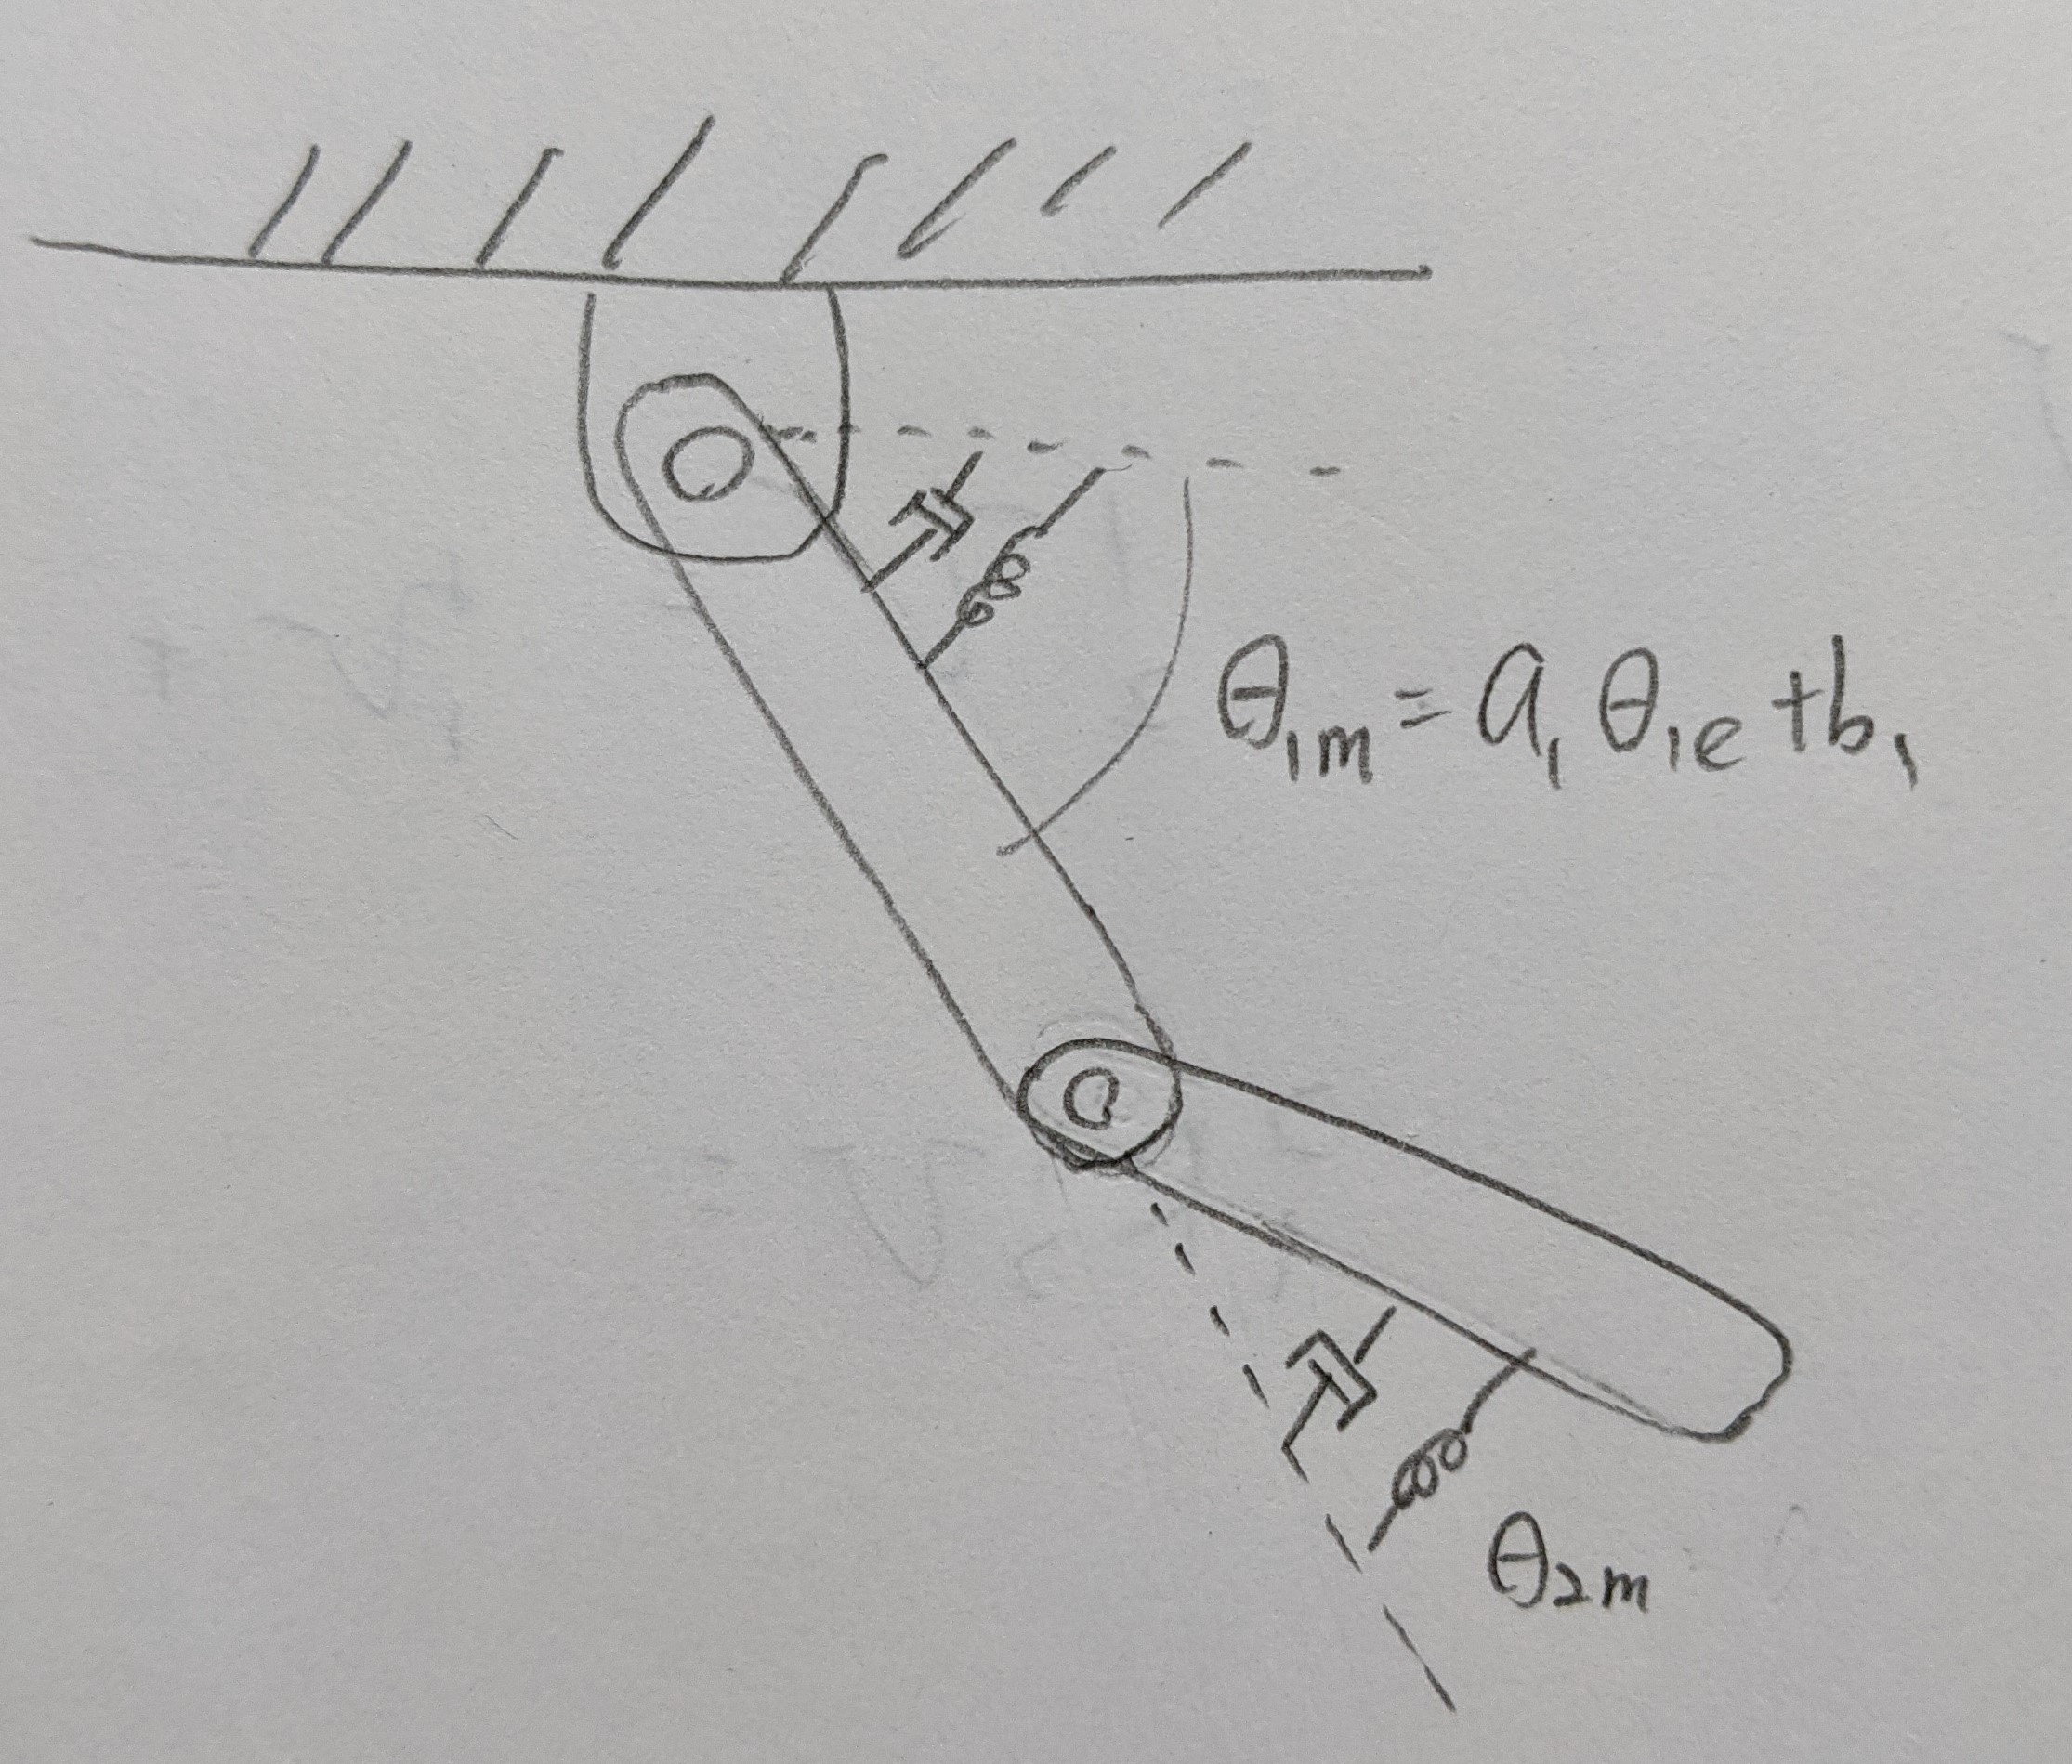 θ₁ₘ = a₁ θ₁e + b₁
θ₂ₘ